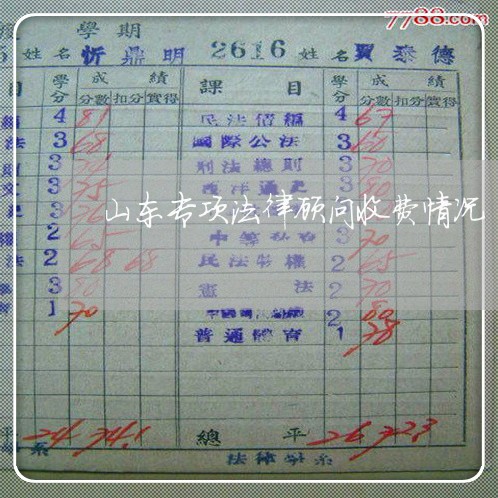 7788.com
學期
姓名 忻鼎明 2616 姓名 賈泰德
目 學分 成績 課目 學分 成績
分數 扣分 實得 分數 扣分 實得
4 81 民法債編 4 67
法 3 68 國際公法 3 60
則 3 刑法總則 3 70
3 75 西洋通史 3 80
山东专项法律顾问收费情况
2 65 3 70
法 2 68 68 民法物權 2 65
3 80 憲法 2 70
1 70 2 80
普通體育 1 78
平 24 74.1 總平 26 72.3
系 法律學系